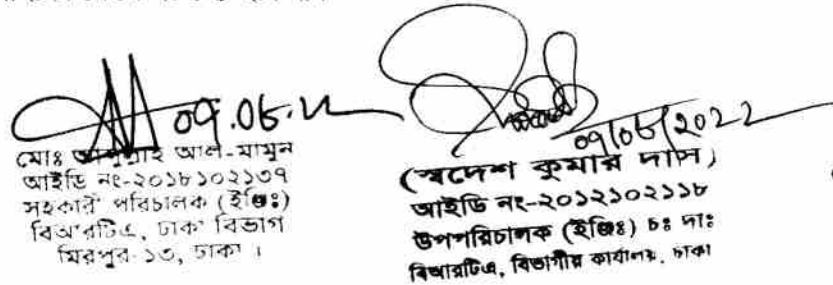 09.06.22
মোঃ আব্দুল্লাহ আল-মামুন
আইডি নং-২০১৮১০২১৩৭
সহকারী পরিচালক (ইঞ্জিঃ)
বিআরটিএ, ঢাকা বিভাগ
মিরপুর-১৩, ঢাকা ।
09/06/2022
(স্বদেশ কুমার দাস)
আইডি নং-২০১২১০২১১৮
উপপরিচালক (ইঞ্জিঃ) চঃ দাঃ
বিআরটিএ, বিভাগীয় কার্যালয়, ঢাকা